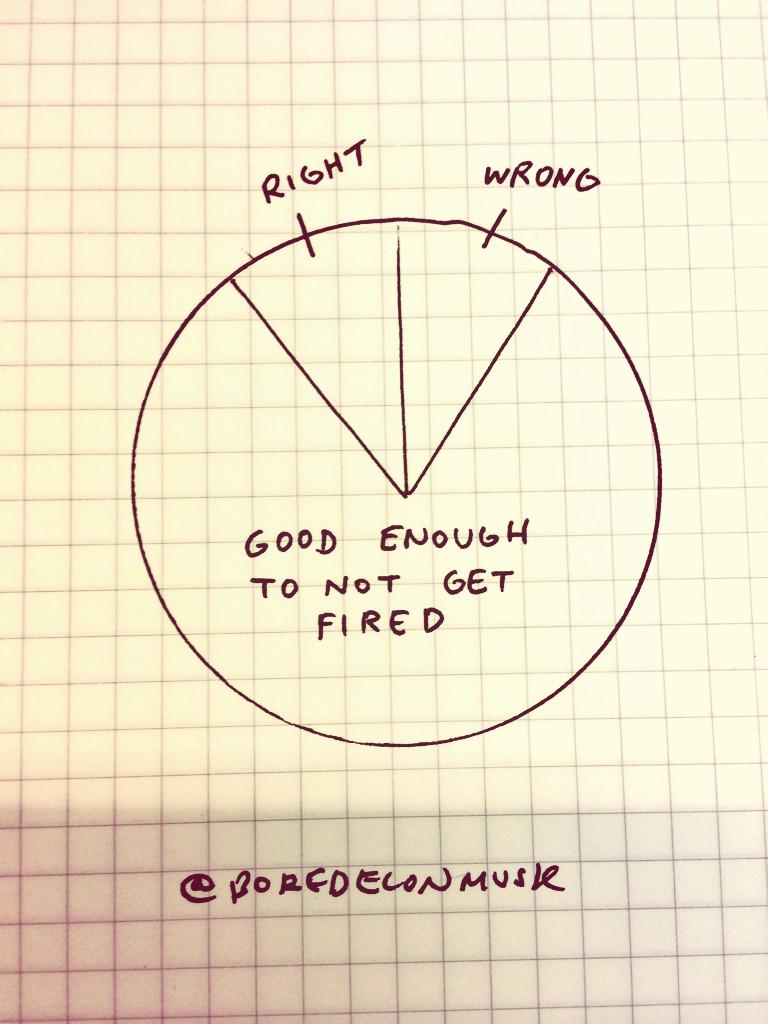 RIGHT
WRONG
GOOD ENOUGH
TO NOT GET
FIRED
@BOREDELONMUSK